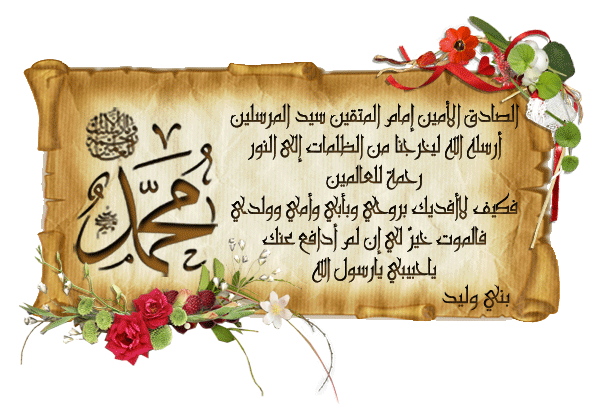 الصادق الأمين إمام المتقين سيد المرسلين
أرسله الله ليخرجنا من الظلمات إلى النور
رحمة للعالمين
فكيف لاأفديك بروحي وبأبي وأمي وولدي
فالموت خيرٌ لي إن لم أدافع عنك
ياحبيبي يارسول الله
بني وليد
محمد